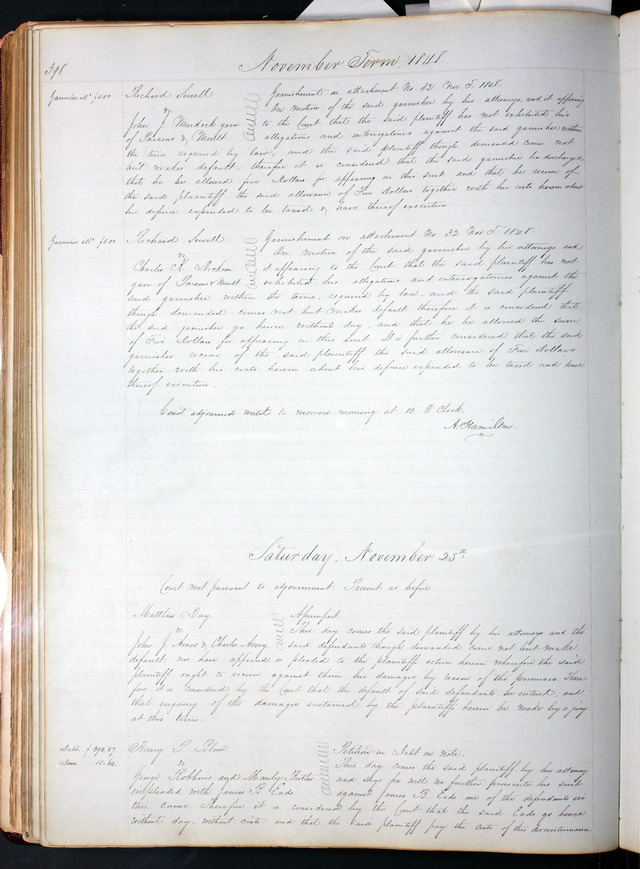 398
November Term, 1848
Richard Sewell
vs
John J. Murdock garn
of Parsons & Moult
Garnishment on attachment No. 42 Nov. T. 1848.
On motion of the said garnishee by his attorneys, and it appearing
to the Court that the said plaintiff has not exhibited his
allegations and interrogatories against the said garnishee within
the time required by law, and the said plaintiff though demanded comes not
but makes default, therefore it is considered that the said garnishee be discharged
that he be allowed five Dollars for appearing in this suit and that he recover of
the said plaintiff the said allowance of Five Dollars together with his costs herein about
his defence expended to be taxed & have thereof execution
Richard Sewell
vs
Charles
garn of Parsons & Moult
Garnishment on attachment No. 32 Nov. T. 1848
On motion of the said garnishee by his attorneys and
it appearing to the Court that the said plaintiff has not
exhibited his allegations and interrogatories against the
said garnishee within the time required by law, and the said plaintiff
though demanded comes not but makes default therefore it is considered that
the said garnishee go hence without day, and that he be allowed the sum
of Five Dollars for appearing in this suit It is further considered that the said
garnishee recover of the said plaintiff the said allowance of Five Dollars
together with his costs herein about his defence expended to be taxed and have
thereof execution.
Court adjourned until to morrow morning at 10 O'Clock.
A Hamilton
Saturday, November 25th
Court met pursuant to adjournment. Present as before
Matthew Day
vs
John J. Amos & Charles Avory
Assumpsit
This day comes the said plaintiff by his attorneys and the
said defendants though demanded come not but make
default, nor have appeared or pleaded to the plaintiffs action herein wherefore the said
plaintiff ought to recover against them his damages by reason of the premises. There
fore it is considered by the Court that the default of said defendants be entered, and
that enquiry of the damages sustained by the plaintiffs herein be made by a jury
at this term.
Debt. $390.57
Dam 15.64
Henry T. Blow
vs
George Robbins and Manly Butler
impleaded with James B. Eads
Petition in Debt on note.
This day comes the said plaintiff by his attorney
and says he will no further prosecute his suit
against James B. Eads one of the defendants in
this cause. Therefore it is considered by the Court that the said Eads go hence
without day, without costs and that the said plaintiff pay the costs of this discontinuance